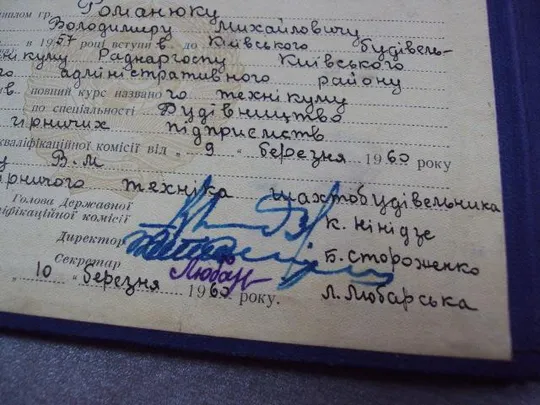 гр. Романюку
Володимиру Михайловичу
в 1957 році вступив до Київського будівель-
Раднаргоспу Київського
адміністративного району
повний курс названого технікуму
по спеціальності Будівництво
гірничих підприємств
кваліфікаційної комісії від „ 9 „ березня 1960 року
В.М
гірничого техніка шахтобудівельника
Голова Державної
кваліфікаційної комісії К. Нінідзе
Директор Б. Стороженко
Секретар Любар Л. Любарська
„ 10 „ березня 1960 року.